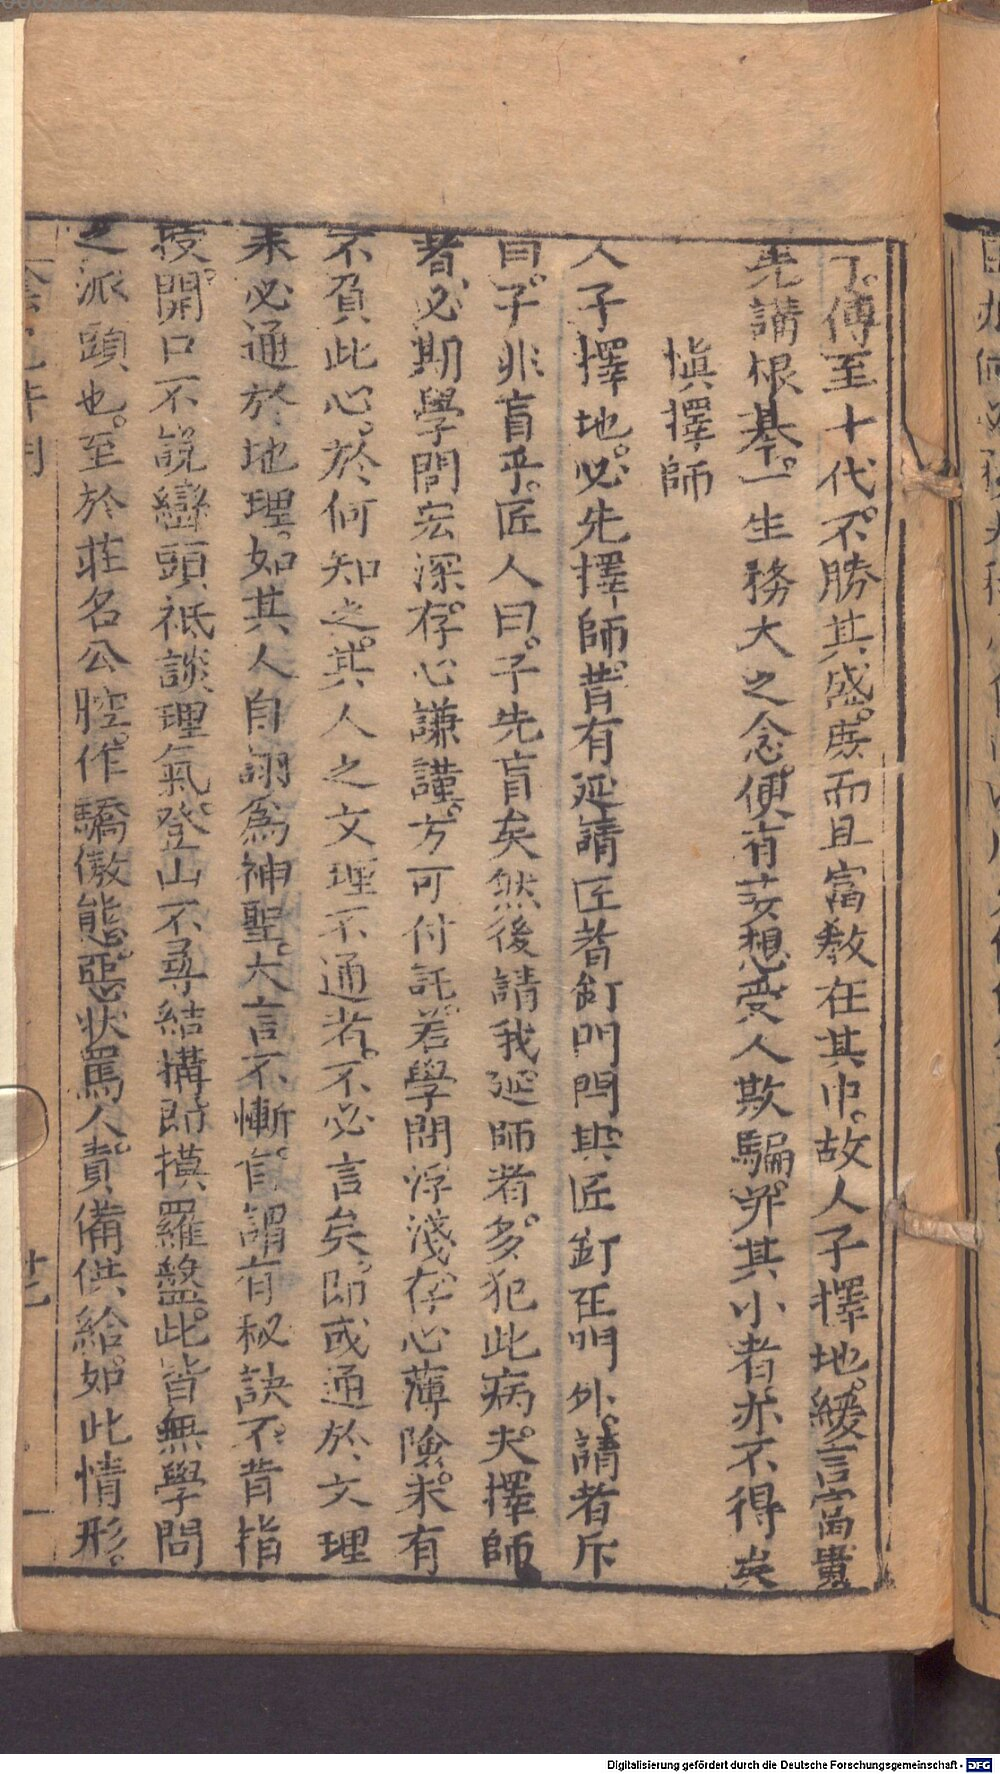 丁。傳至十代。不勝其盛。庶而且富敎在其中。故人子擇地。緩言富貴
先講根基。一生務大之念。便有妄想受人欺騙。并其小者亦不得矣
愼擇師
人子擇地。必先擇師。昔有延請匠者釘門閂。其匠釘在門外。請者斥
曰。子非盲乎。匠人曰。子先盲矣然後請我延師者。多犯此病。夫擇師
者。必期學問宏深。存心謙謹。方可付託。若學問浮淺存心薄險。未有
不負此心。於何知之。其人之文理不通者。不必言矣。卽或通於文理
未必通於地理。如其人自詡爲神聖。大言不慚。自謂有秘訣。不肯指
授。開口不說巒頭祇談理氣。登山不尋結搆卽摸羅盤。此皆無學問
之派頭也。至於莊名公腔。作驕傲態。惡狀罵人。責備供給。如此情形。
廿七
Digitalisierung gefördert durch die Deutsche Forschungsgemeinschaft - DFG